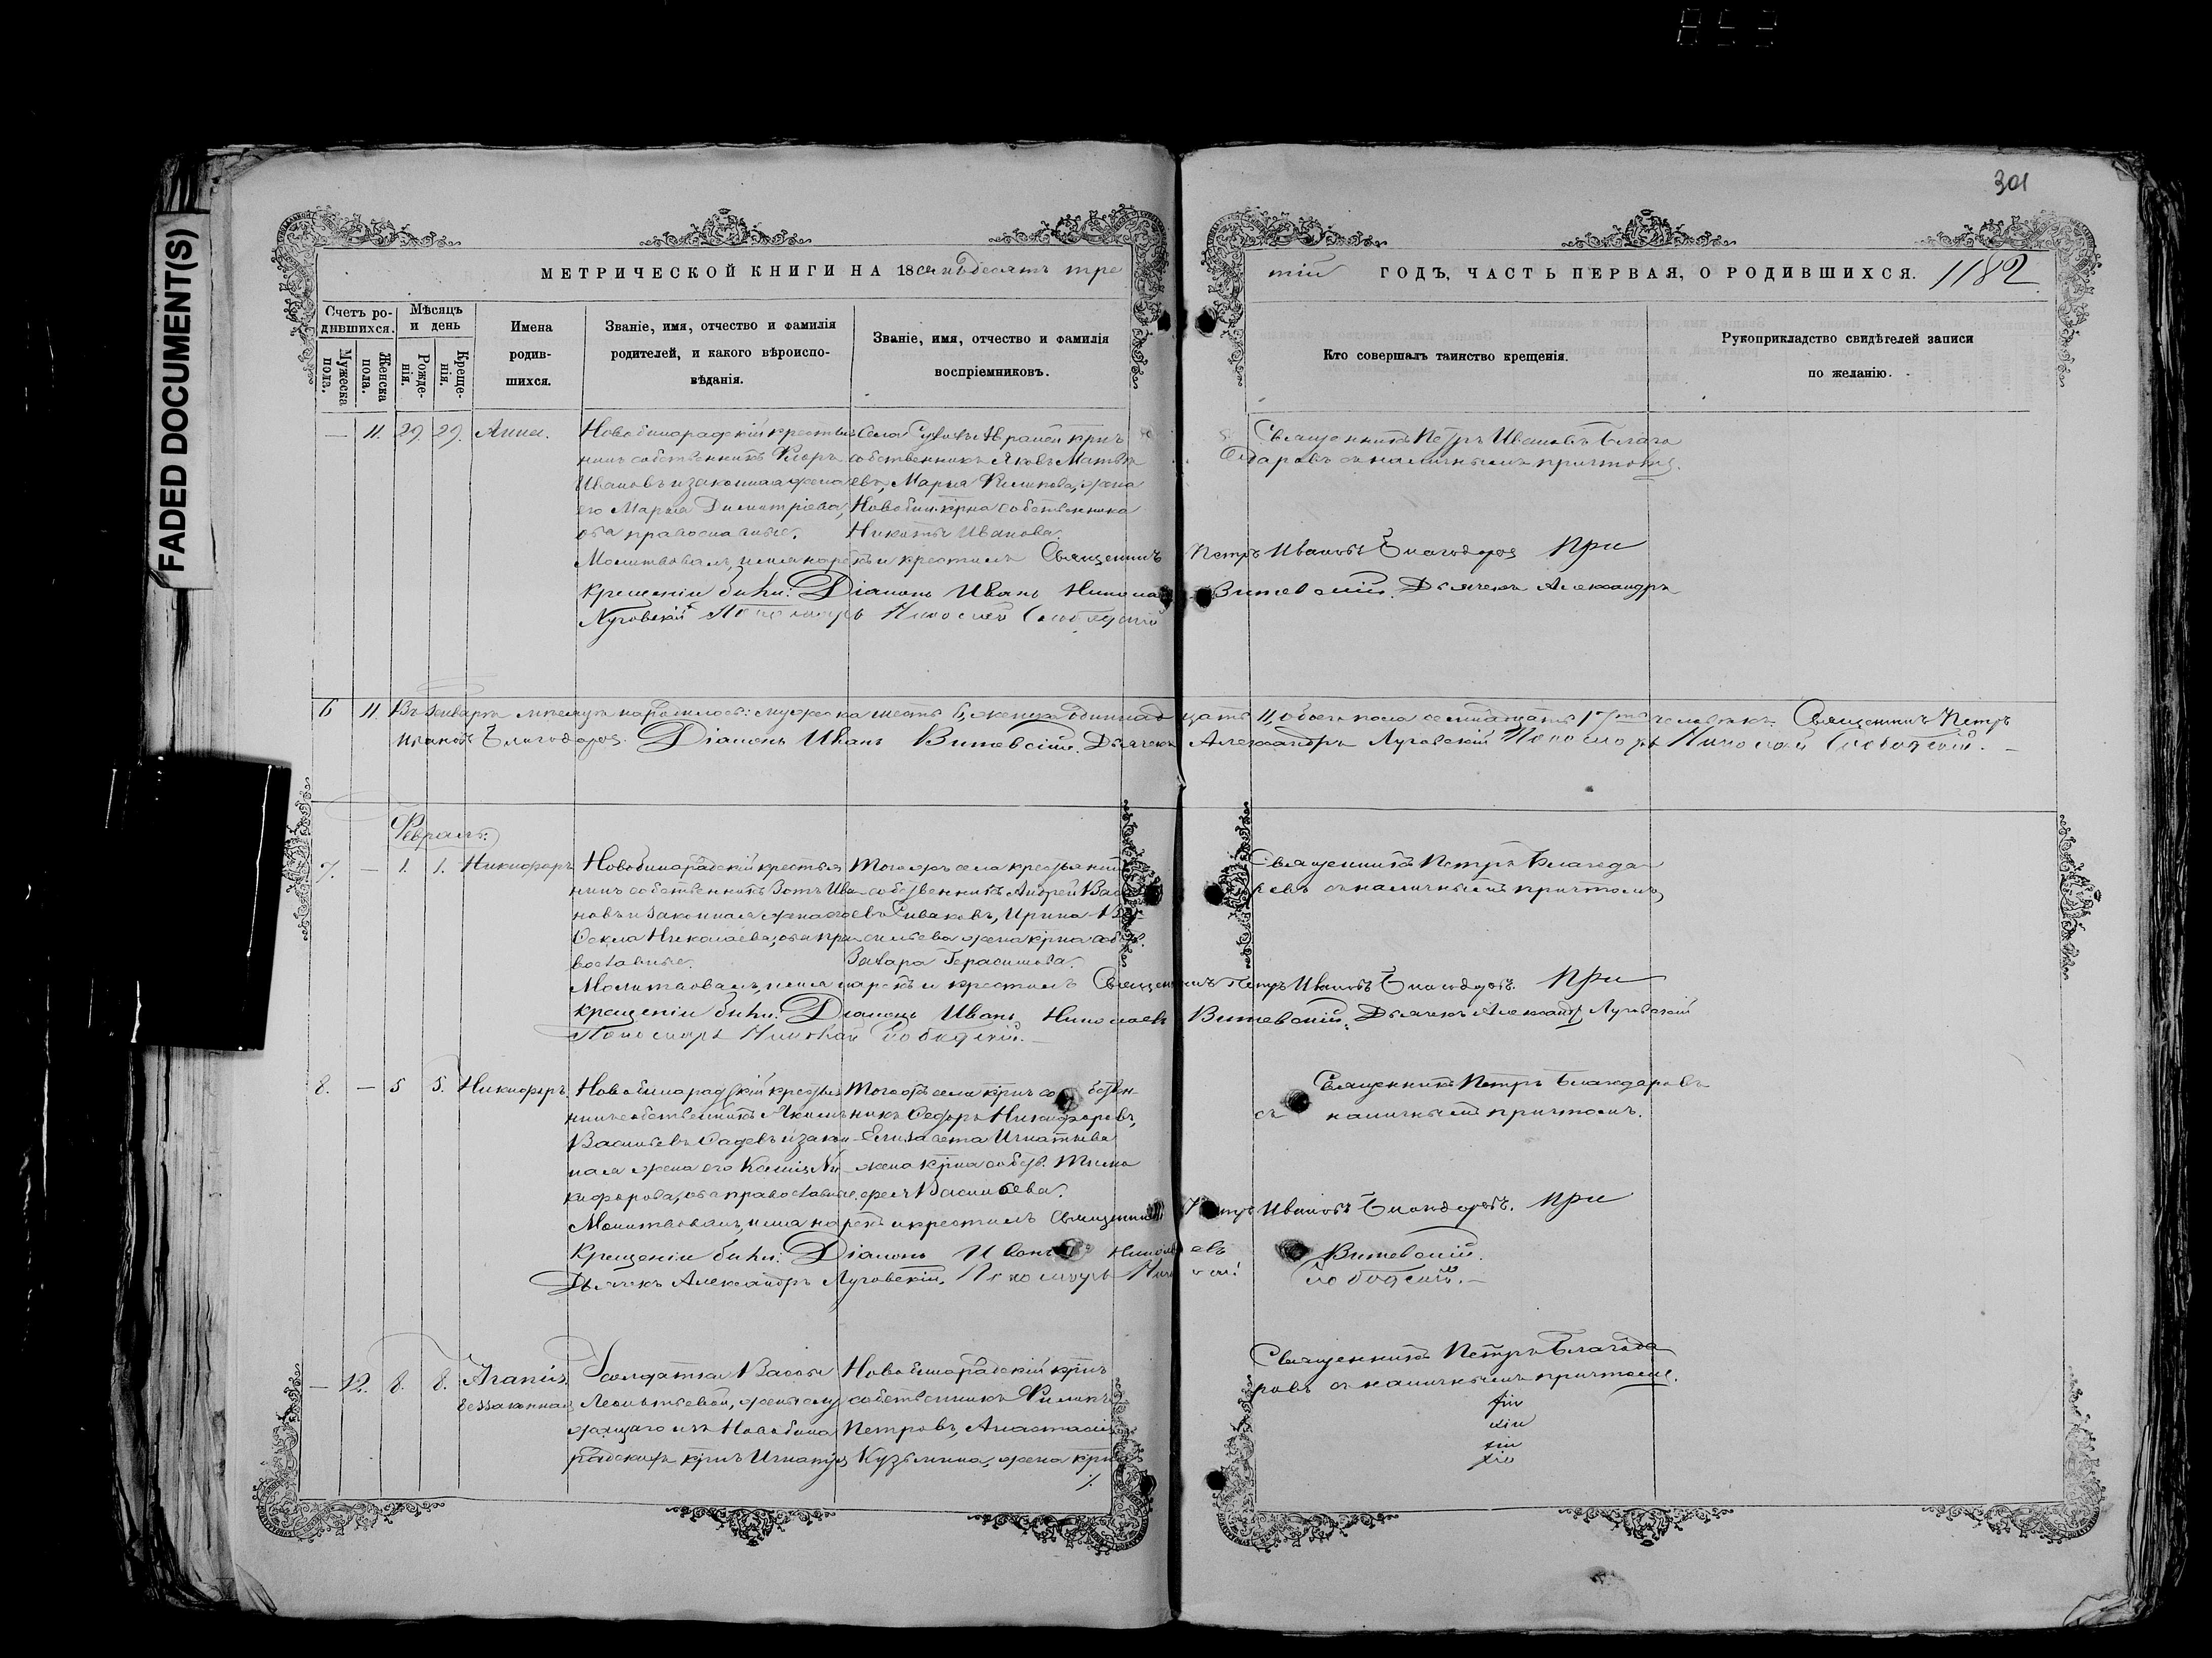 853
FADED DOCUMENT(S)
301
МЕТРИЧЕСКОЙ КНИГИ НА 18семьдесятъ тре
тій ГОДЪ, ЧАСТЬ ПЕРВАЯ, О РОДИВШИХСЯ. 1182
Счетъ ро-
дившихся.
Мужеска
пола.
Женска
пола.
Мѣсяцъ
и день
Рожде-
нія.
Креще-
нія.
Имена
родив-
шихся.
Званіе, имя, отчество и фамилія
родителей, и какого вѣроиспо-
вѣданія.
Званіе, имя, отчество и фамилія
воспріемниковъ.
Кто совершалъ таинство крещенія.
Рукоприкладство свидѣтелей записи
по желанію.
— 11. 29. 29. Анна.
Новобинарадскій крестья
нинъ собственникъ
Ивановъ и законная жена
его Марья Димитріева,
оба православные.
Села крнъ
собственникъ Яковъ Матвѣ
евъ, Марья Филипова, жена
Новобин. крна собственника
Никиты Иванова.
Священникъ Петръ Ивановъ Благо
даровъ съ наличнымъ причтомъ.
Молитвовалъ, имя нарекъ и крестилъ Священникъ Петръ Ивановъ Благодаровъ При
крещеніи были: Діаконъ Иванъ Витевскій. Дьячекъ Александръ
Луговскій Пономарь Николай Слободскій
6 11. Въ Генварѣ мѣсяцѣ народилось: мужеска шесть 6, женска одиннадцать 11, обоего пола семнадцать 17ть человѣкъ. Священникъ Петръ
Ивановъ Благодаровъ. Діаконъ Иванъ Витевскій. Дьячекъ Александръ Луговскій Пономарь Николай Слободскій. —
Февраль:
7. — 1. 1. Никифоръ
Новобинарадскій крестья
нинъ собственникъ Зотъ Ива
новъ и законная жена его
Ѳекла Николаева, оба пра
вославные.
Тогожъ села крестьянинъ
собственникъ Андрей Васи
евъ Сиваковъ, Ирина Ва
сильева жена крна собст.
Захара Герасимова.
Священникъ Петръ Благода
ровъ съ наличнымъ причтомъ,
Молитвовалъ, имя нарекъ и крестилъ Священникъ Петръ Ивановъ Благодаровъ. При
крещеніи были: Діаконъ Иванъ Николаевъ Витевскій. Дьячекъ Александръ Луговскій
Пономарь Николай Слободскій. —
8. — 5 5. Никифоръ
Новобинарадскій крестья
нинъ собственникъ Якимъ
Васильевъ и закон
ная жена его Ни
кифорова, оба православные.
Тогожъ села крнъ собствен-
никъ Ѳедоръ Никифоровъ,
Елизавета Игнатьева
жена крна собств. Тимо
фея Васильева.
Священникъ Петръ Благодаровъ
съ наличнымъ причтомъ.
Молитвовалъ, имя нарекъ и крестилъ Священникъ Петръ Ивановъ Благодаровъ. При
крещеніи были: Діаконъ Иванъ Николаевъ Витевскій.
Дьячекъ Александръ Луговскій. Пономарь Николай Слободскій. —
— 12. 8. 8. Агапія
беззаконная
Солдатка Васса
Леонтьевой, жены слу
жащаго изъ Новобина
радскихъ крнъ Игнатія
Новобинарадскій крнъ
собственникъ Филипъ
Петровъ, Анастасія
Кузьмина, жена крна
Священникъ Петръ Благода
ровъ съ наличнымъ причтомъ.